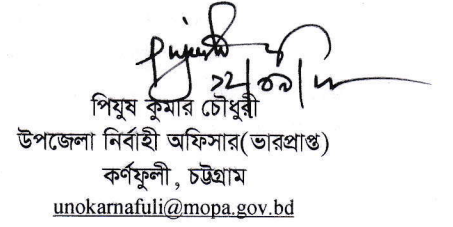 পিযুষ কুমার চৌধুরী
উপজেলা নির্বাহী অফিসার(ভারপ্রাপ্ত)
কর্ণফুলী , চট্টগ্রাম
unokarnafuli@mopa.gov.bd